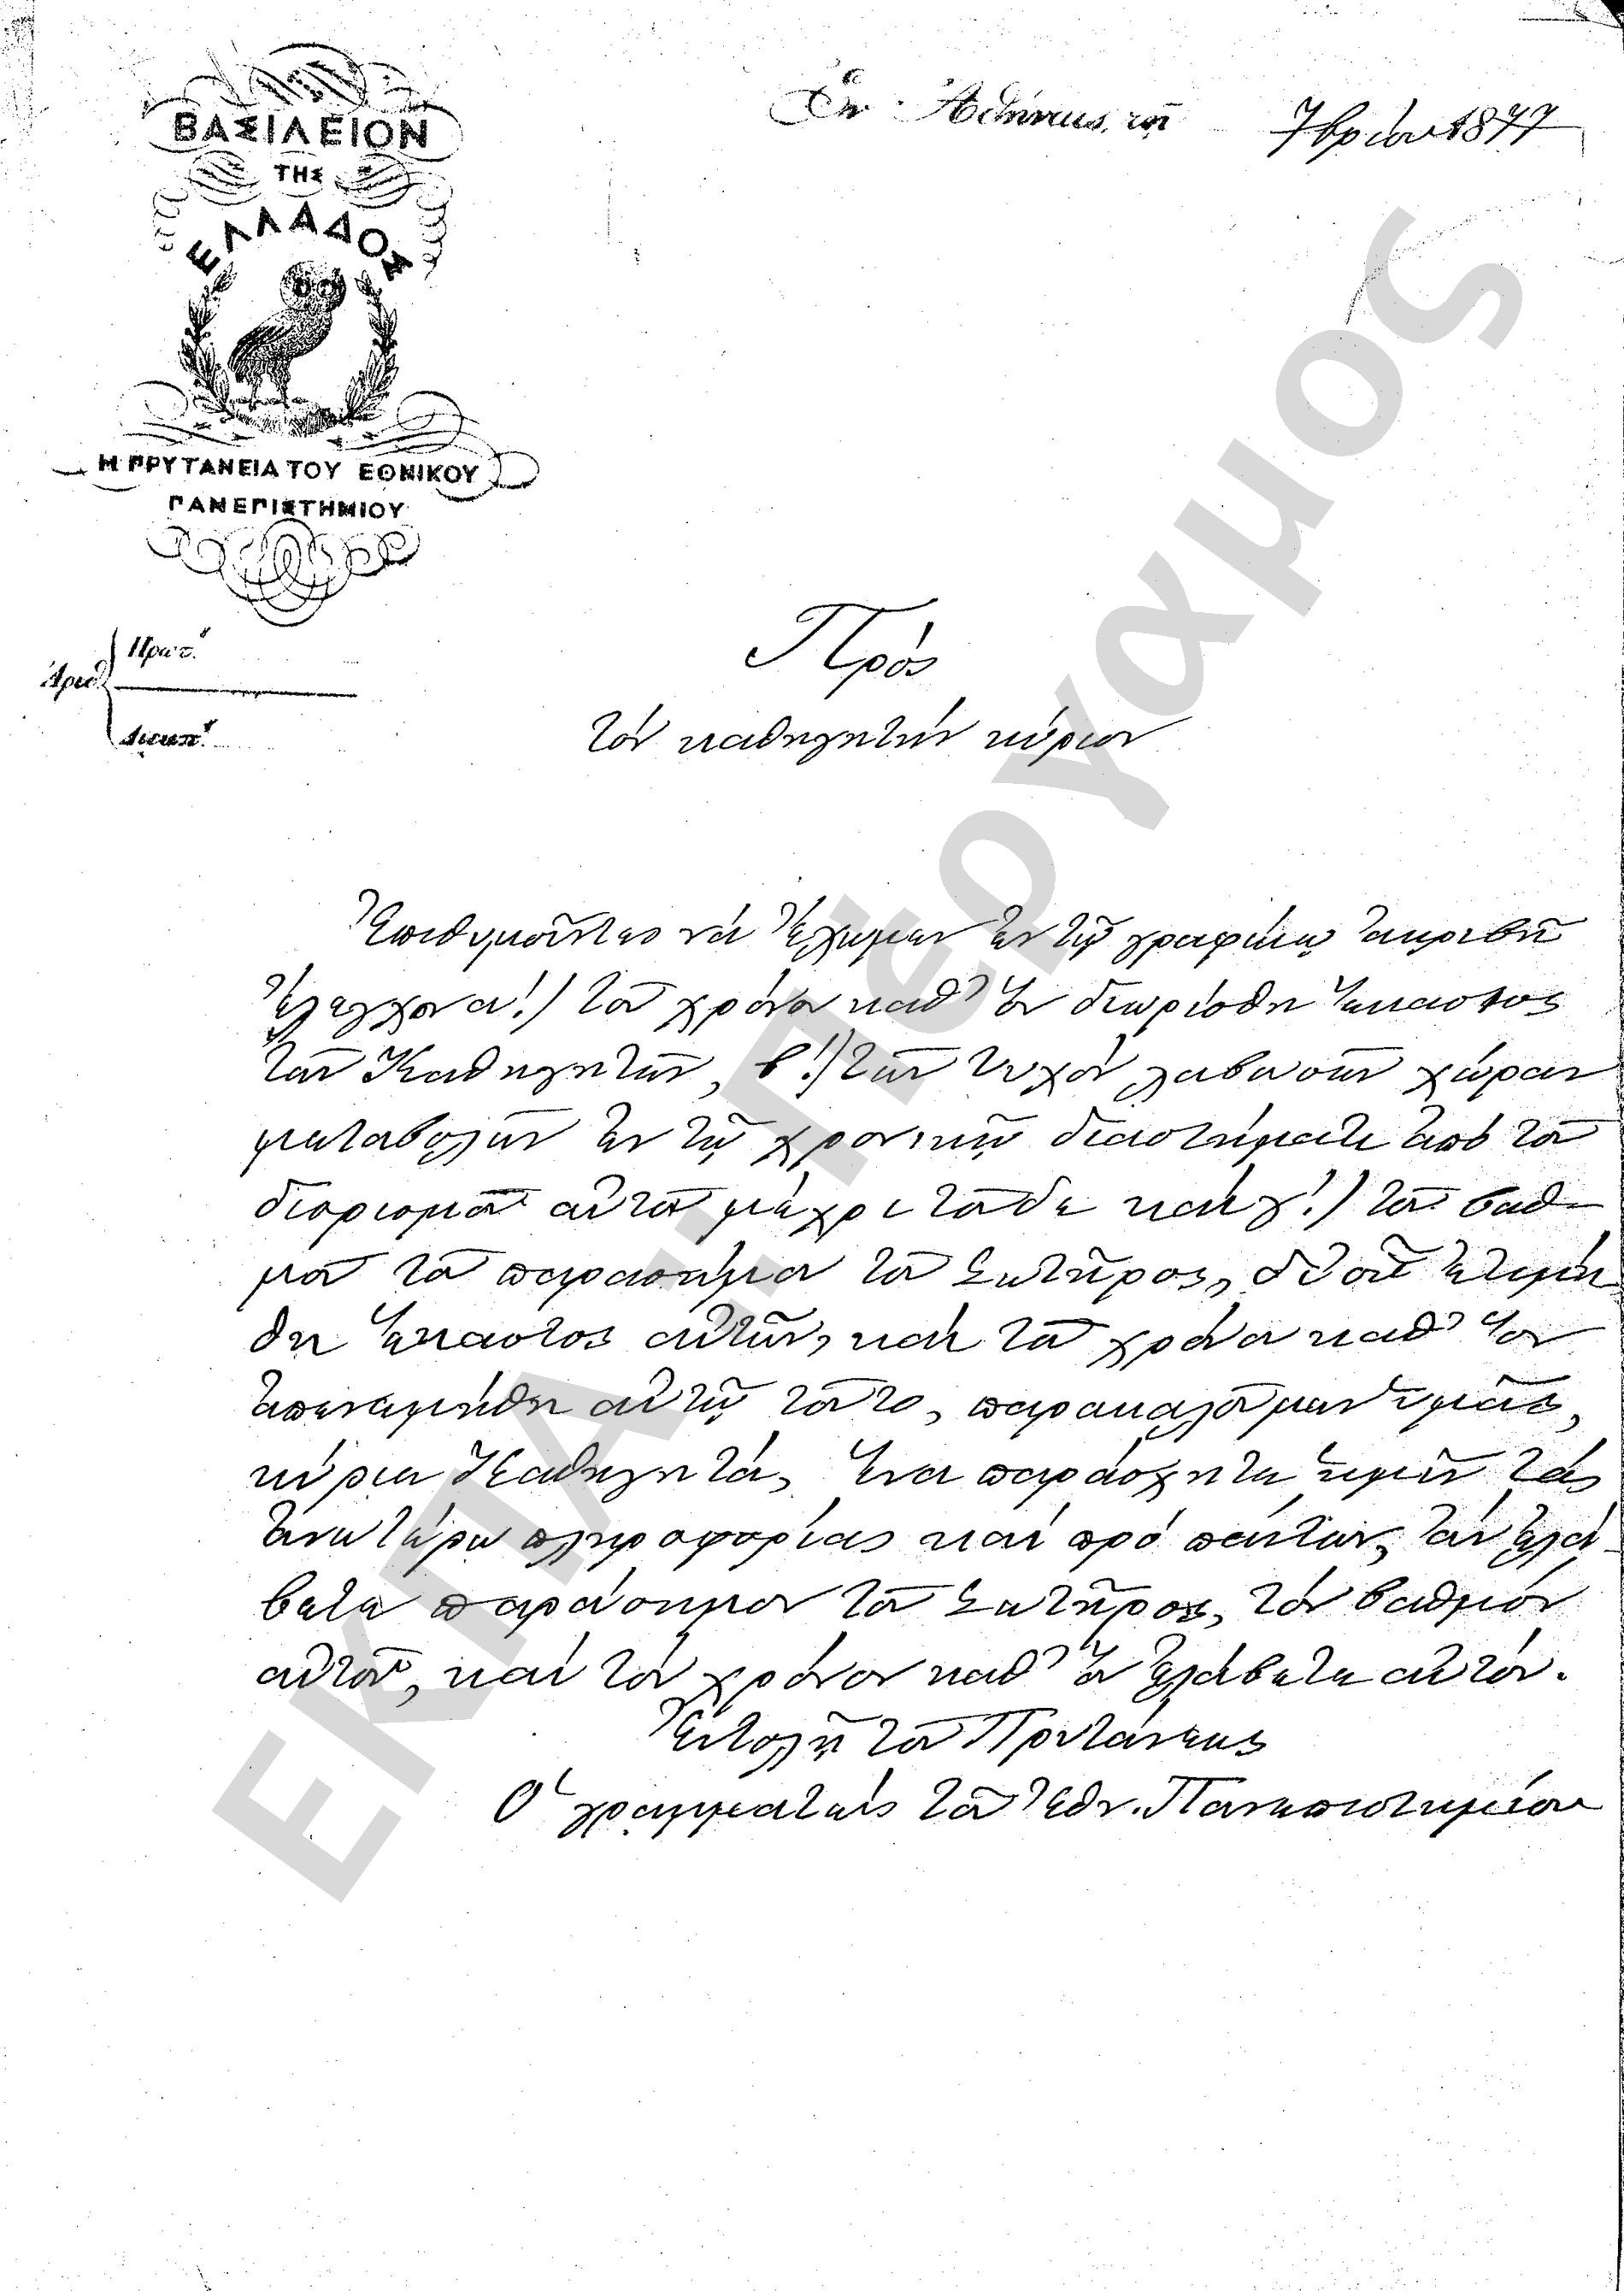 ΒΑΣΙΛΕΙΟΝ
ΤΗΣ
ΕΛΛΑΔΟΣ
Η ΠΡΥΤΑΝΕΙΑ ΤΟΥ ΕΘΝΙΚΟΥ
ΠΑΝΕΠΙΣΤΗΜΙΟΥ
Ἐν Ἀθήναις, τῇ 7βρίου 1877
Ἀριθ.
Πρωτ.
Διεκπ.
Πρὸς
τὸν καθηγητὴν κύριον
Ἐπιθυμοῦντες νὰ ἔχωμεν ἐν τῷ γραφείῳ ἀκριβῆ
ἔλεγχον α!) τοῦ χρόνου καθ' ὃν διωρίσθη ἕκαστος
τῶν Καθηγητῶν, β!) τῶν τυχὸν λαβουσῶν χώραν
μεταβολῶν ἐν τῷ χρονικῷ διαστήματι ἀπὸ τοῦ
διορισμοῦ αὐτοῦ μέχρι τοῦδε καὶ γ!) τοῦ βαθ-
μοῦ τοῦ παρασήμου τοῦ Σωτῆρος, δι' οὗ ἐτιμή
θη ἕκαστος αὐτῶν, καὶ τοῦ χρόνου καθ' ὃν
ἀπενεμήθη αὐτῷ τοῦτο, παρακαλοῦμεν ὑμᾶς,
κύριε Καθηγητά, ἵνα παράσχητε ἡμῖν τὰς
ἀνωτέρω πληροφορίας καὶ πρὸ πάντων, ἂν ἐλά-
βετε παράσημον τοῦ Σωτῆρος, τὸν βαθμὸν
αὐτοῦ, καὶ τὸν χρόνον καθ' ὃν ἐλάβετε αὐτόν.
Ἐντολῇ τοῦ Πρυτάνεως
Ὁ γραμματεὺς τοῦ Ἐθν. Πανεπιστημείου
ΕΚΠΑ: Πέργαμος